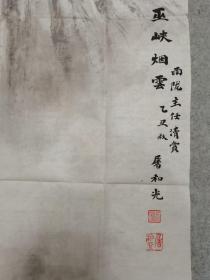 巫峡烟雲
南陇主任清赏
乙丑秋 屠和光